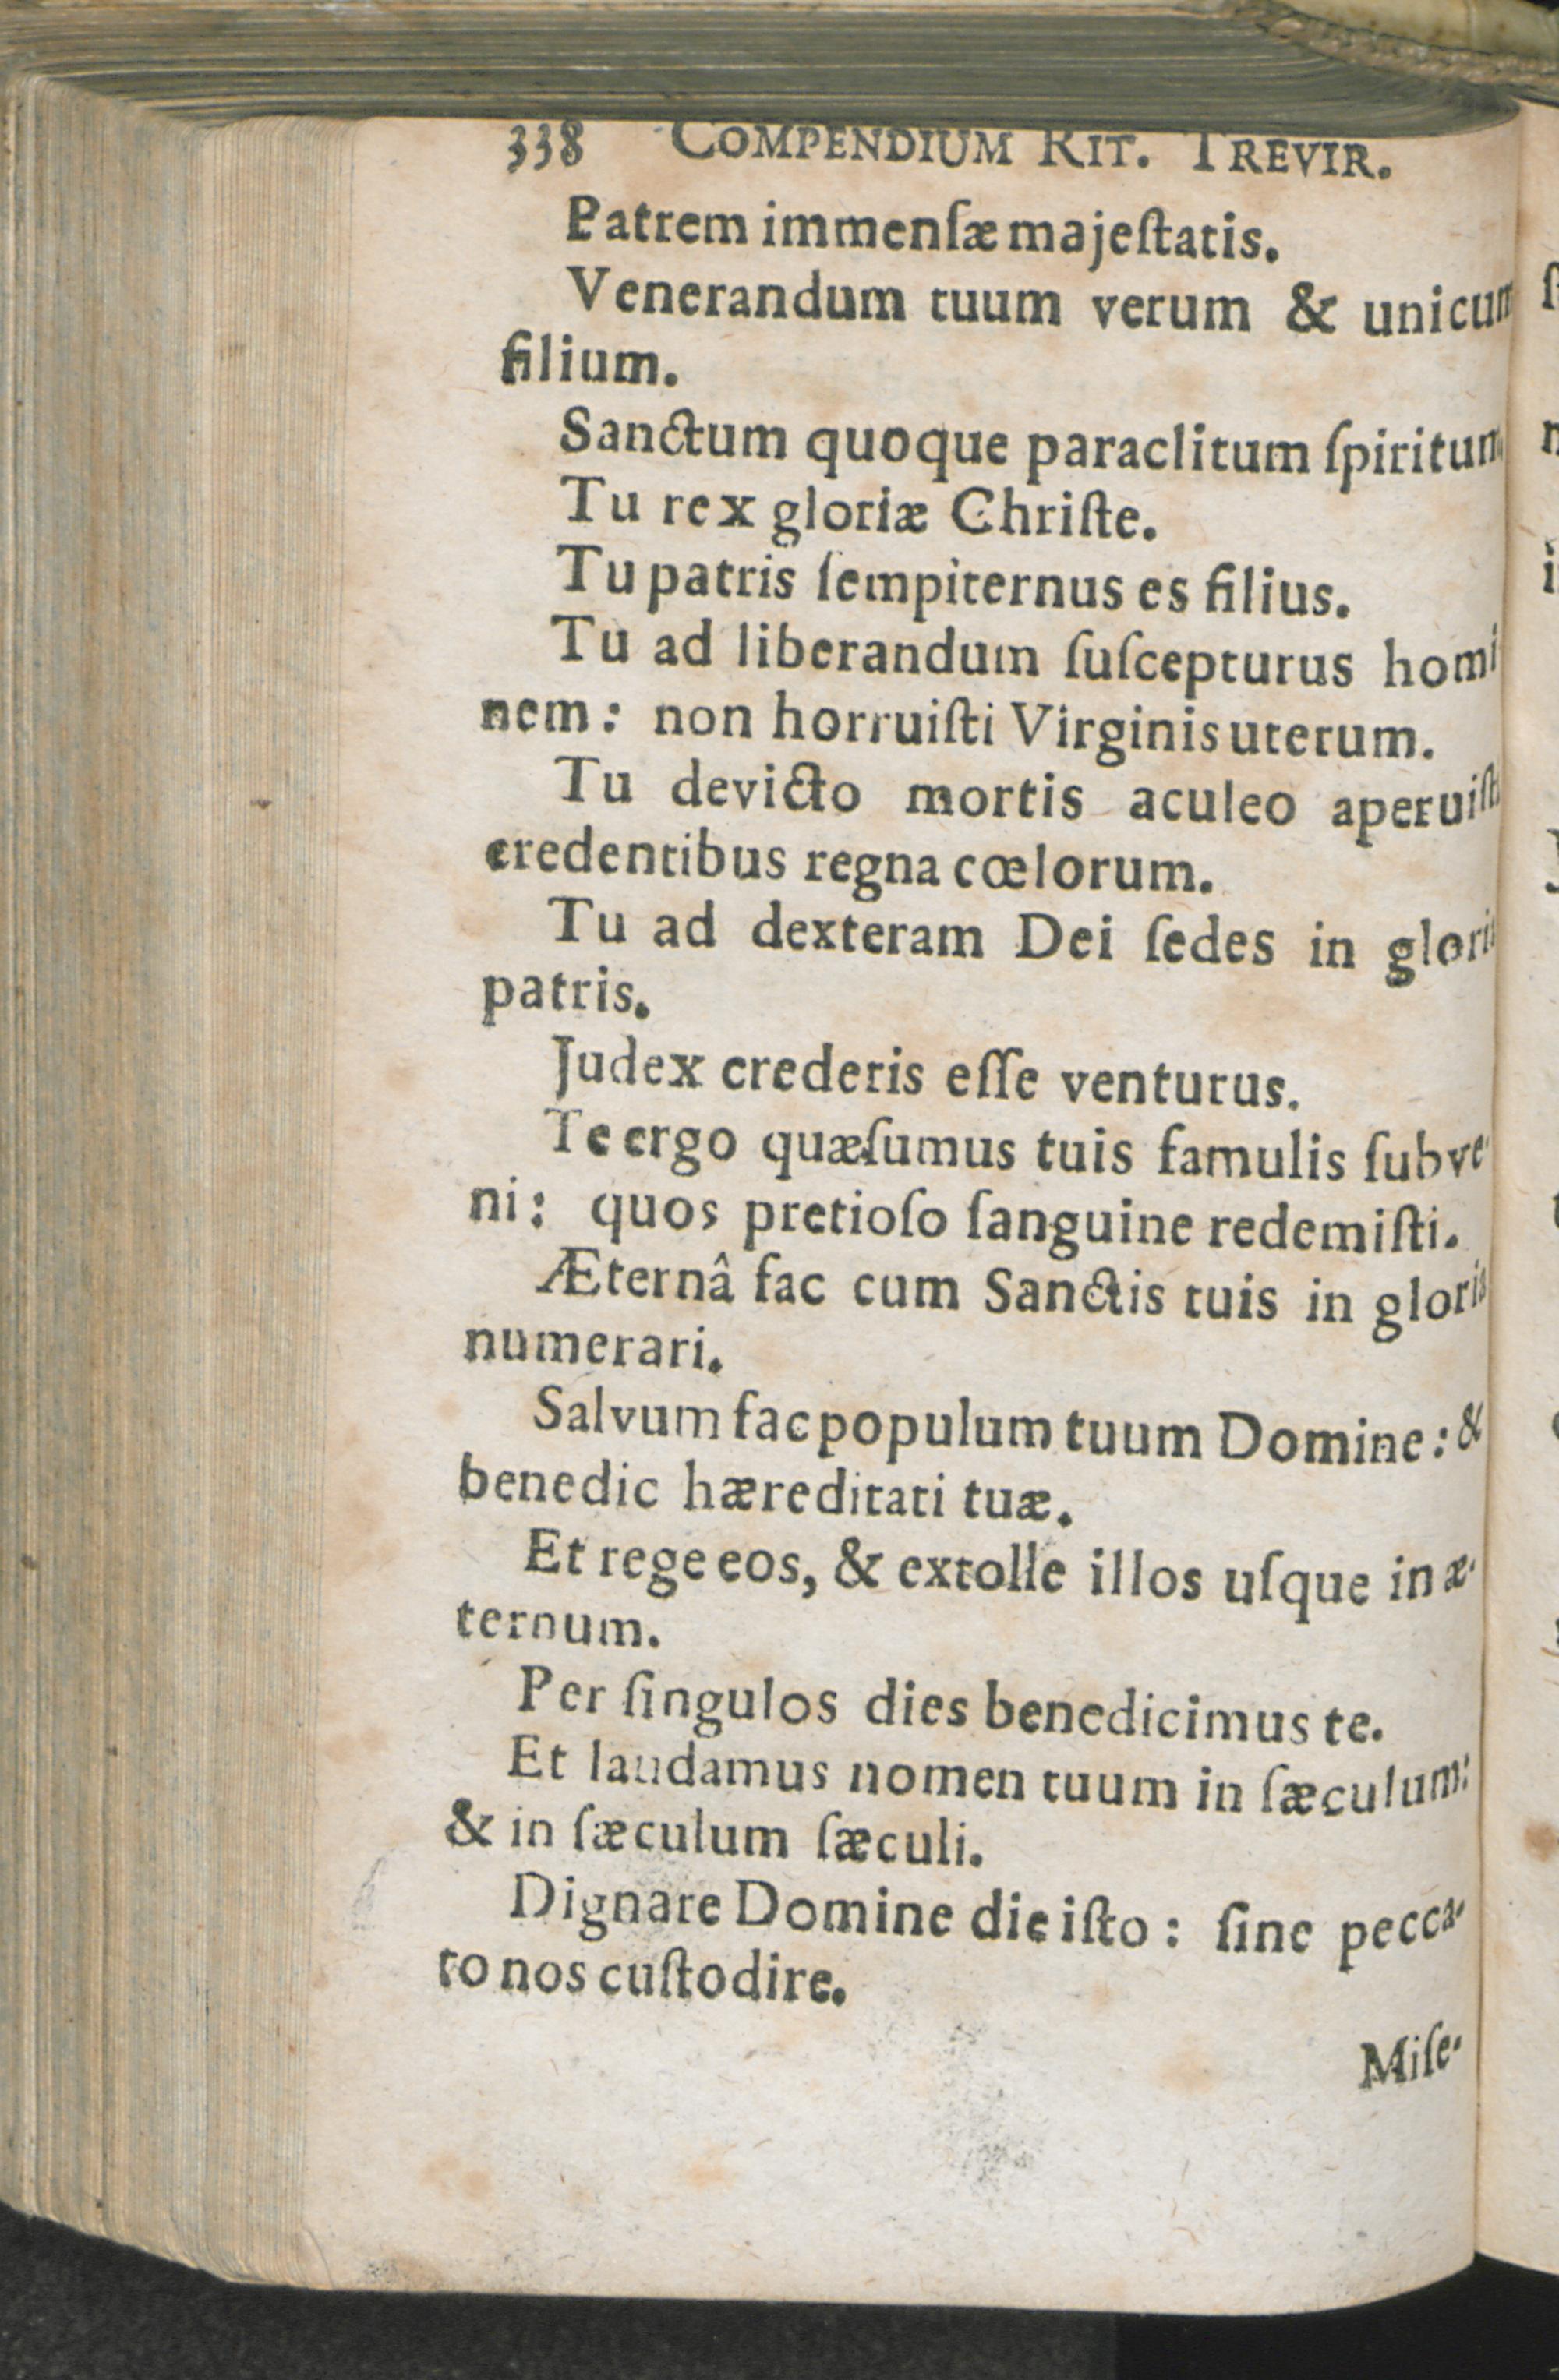 338 COMPENDIUM RIT. TREVIR.
Patrem immenſæ majeſtatis.
Venerandum tuum verum & unicum
filium.
Sanctum quoque paraclitum ſpiritum
Tu rex gloriæ Chriſte.
Tu patris ſempiternus es filius.
Tu ad liberandum ſuſcepturus homi
nem: non horruiſti Virginis uterum.
Tu devicto mortis aculeo aperuiſti
credentibus regna cœlorum.
Tu ad dexteram Dei ſedes in gloriâ
patris.
Judex crederis eſſe venturus.
Te ergo quæſumus tuis famulis ſubve-
ni: quos pretioſo ſanguine redemiſti.
Æternâ fac cum Sanctis tuis in gloria
numerari.
Salvum fac populum tuum Domine: &
benedic hæreditati tuæ.
Et rege eos, & extolle illos uſque in æ-
ternum.
Per ſingulos dies benedicimus te.
Et laudamus nomen tuum in ſæculum:
& in ſæculum ſæculi.
Dignare Domine die iſto: ſine pecca-
to nos cuſtodire.
Miſe-